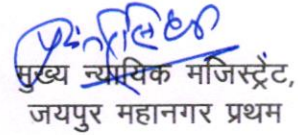 मुख्य न्यायिक मजिस्ट्रैट,
जयपुर महानगर प्रथम